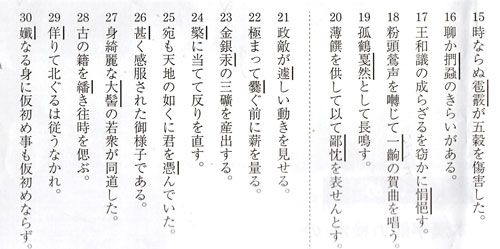 15 時ならぬ雹霰が五穀を傷害した。
16 聊か捫蝨のきらいがある。
17 王和議の成らざるを窃かに悁悒す。
18 粉頭鶯声を囀じて一齣の賀曲を唱う
19 孤鶴戛然として長鳴す。
20 薄饌を供して以て鄙忱を表せんとす。
21 政敵が遽しい動きを見せる。
22 極まって爨ぐ前に薪を量る。
23 金銀汞の三礦を産出する。
24 檠に当てて反りを直す。
25 宛も天地の如くに君を憑んでいた。
26 甚く感服された御様子である。
27 身綺麗な大髻の若衆が同道した。
28 古の籍を繙き往時を偲ぶ。
29 佯りて北ぐるは従うなかれ。
30 孅なる身に仮初め事も仮初めならず。